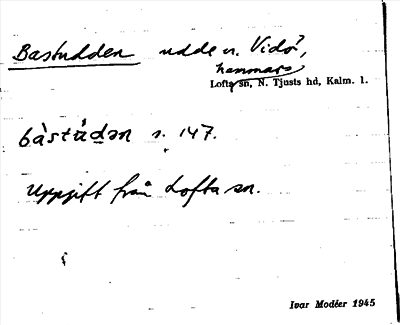 Bastudden udde n. Vidö,
hammars
Lofta sn, N. Tjusts hd, Kalm. l.
båstådən s. 147.
Uppgift från Lofta sn.
Ivar Modéer 1945